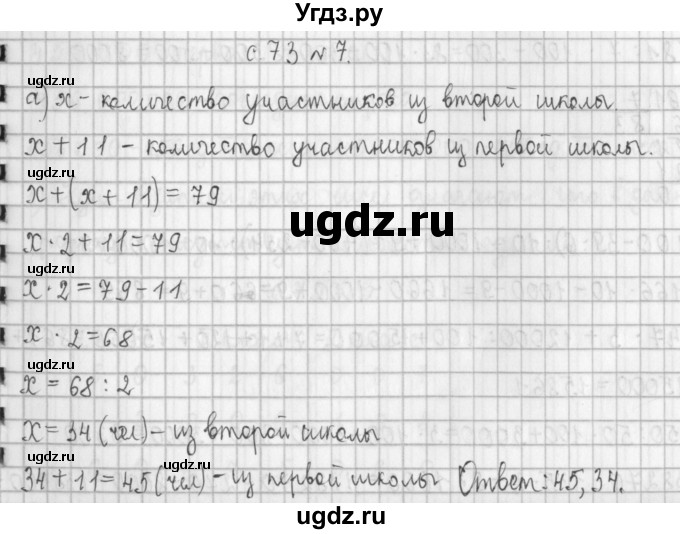 Угдз.ру
с 73 № 7.
ugdz.ru
а) x – количество участников из второй школы.
x + 11 – количество участников из первой школы.
ugdz.ru
x + (x + 11) = 79
ugdz.ru
x · 2 + 11 = 79
ugdz.ru
x · 2 = 79 - 11
x · 2 = 68
ugdz.ru
x = 68 : 2
x = 34 (чел) – из второй школы
ugdz.ru
ugdz.ru
34 + 11 = 45 (чел) – из первой школы Ответ: 45, 34.
ugdz.ru